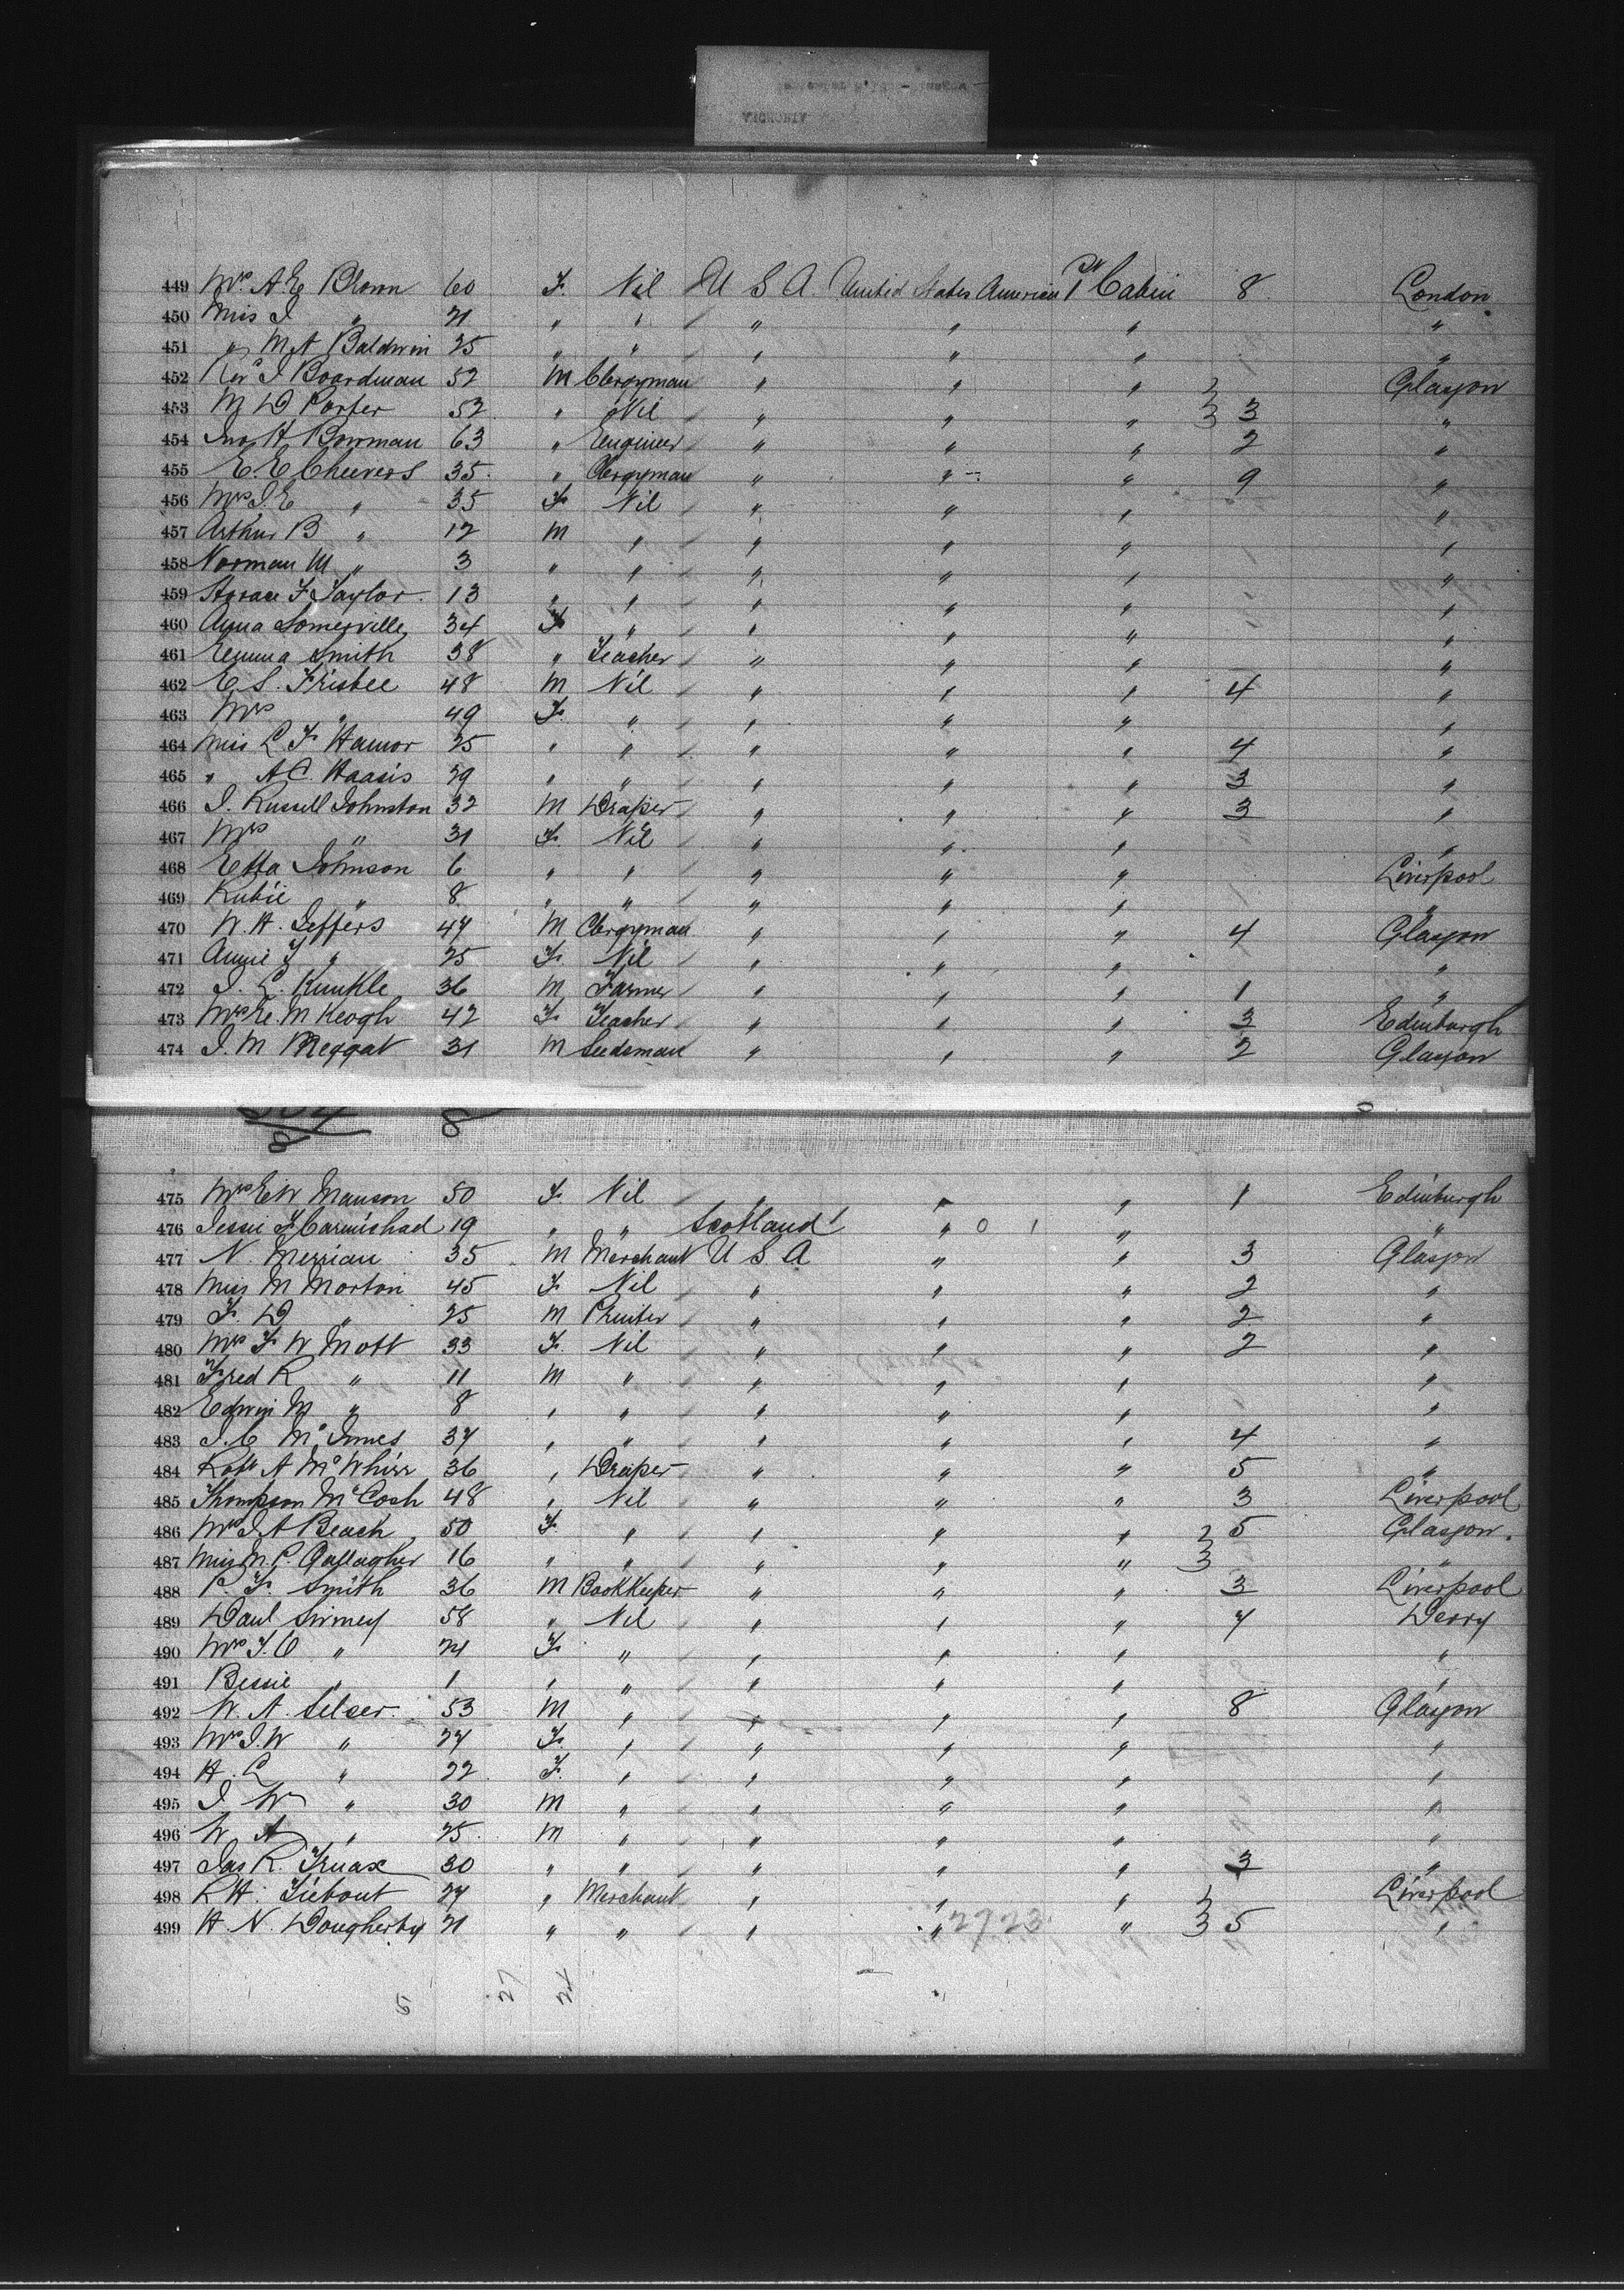 449 Mrs A.E Blown 60 F. Nil U S A. United States American 1st Cabin 8 London
450 Miss J " 21 " " " " " "
451 " M A Baldwin 25 " " " " " "
452 Revd J Boardman 52 M Clergyman " " " } Glasgow
453 M D Porter 52 " Nil " " " } 3 "
454 Jno H Bowman 63 " Engineer " " " 2 "
455 E. E Cheevers 35. " Clergyman " " " 9 "
456 Mrs J. E " 35 F Nil " " " "
457 Arthur B " 12 M " " " " "
458 Norman M " 3 " " " " " "
459 Horace F Taylor. 13 " " " " " "
460 Anna Somerville 34 F " " " " "
461 Emma Smith 38 " Teacher " " " "
462 E S. Frisbee 48 M Nil " " " 4 "
463 Mrs " 49 F. " " " " "
464 Miss L F Hamor 25 " " " " " 4 "
465 " A C. Haasis 29 " " " " " 3 "
466 J. Russell Johnston 32 M Draper " " " 3 "
467 Mrs " 31 F. Nil " " " "
468 Etta Johnson 6 " " " " " Liverpool
469 Rubie " 8 " " " " " "
470 W. H. Jeffers 47 M Clergyman " " " 4 Glasgow
471 Annie F " 25 F. Nil " " " "
472 J. L. Kunkle 36 M Farmer " " " 1 "
473 Mrs E. M Keogh 42 F Teacher " " " 3 Edinburgh
474 J. M Meggat 31 M Seedsman " " " 2 Glasgow
475 Mrs E W Manson 50 F. Nil " " " 1 Edinburgh
476 Jessie F Carmichad 19 " " Scotland " 0 1 " "
477 N. Merriau 35 M Merchant U S A " " 3 Glasgow
478 Miss M Morton 45 F Nil " " " 2 "
479 F. D " 25 M Printer " " " 2 "
480 Mrs F W Mott 33 F. Nil " " " 2 "
481 Fred R " 11 M " " " " "
482 Edwin M " 8 " " " " " "
483 J. C McInnes 37 " " " " " 4 "
484 Robt A McWhirr 36 " Draper " " " 5 "
485 Thompson McCosh 48 " Nil " " " 3 Liverpool
486 Mrs J A Beach 50 F " " " " } 5 Glasgow.
487 Miss M. C. Gallagher 16 " " " " " } "
488 P. F. Smith 36 M BookKeeper " " " 3 Liverpool
489 Danl Sirmey 58 " Nil " " " 7 Derry
490 Mrs F. C " 21 F " " " " "
491 Bessie " 1 " " " " " "
492 W. A. Selser. 53 M " " " " 8 Glasgow
493 Mrs J. W " 27 F. " " " " "
494 H. L " 22 F. " " " " "
495 J. W " 30 M " " " " "
496 W A " 25. M " " " " "
497 Jas R. Truax 30 " " " " " 3 "
498 R H. Tiebout 27 " Merchant " " " } Liverpool
499 H. N. Dougherty 21 " " " " 2723 " } 5 "
5 27 24